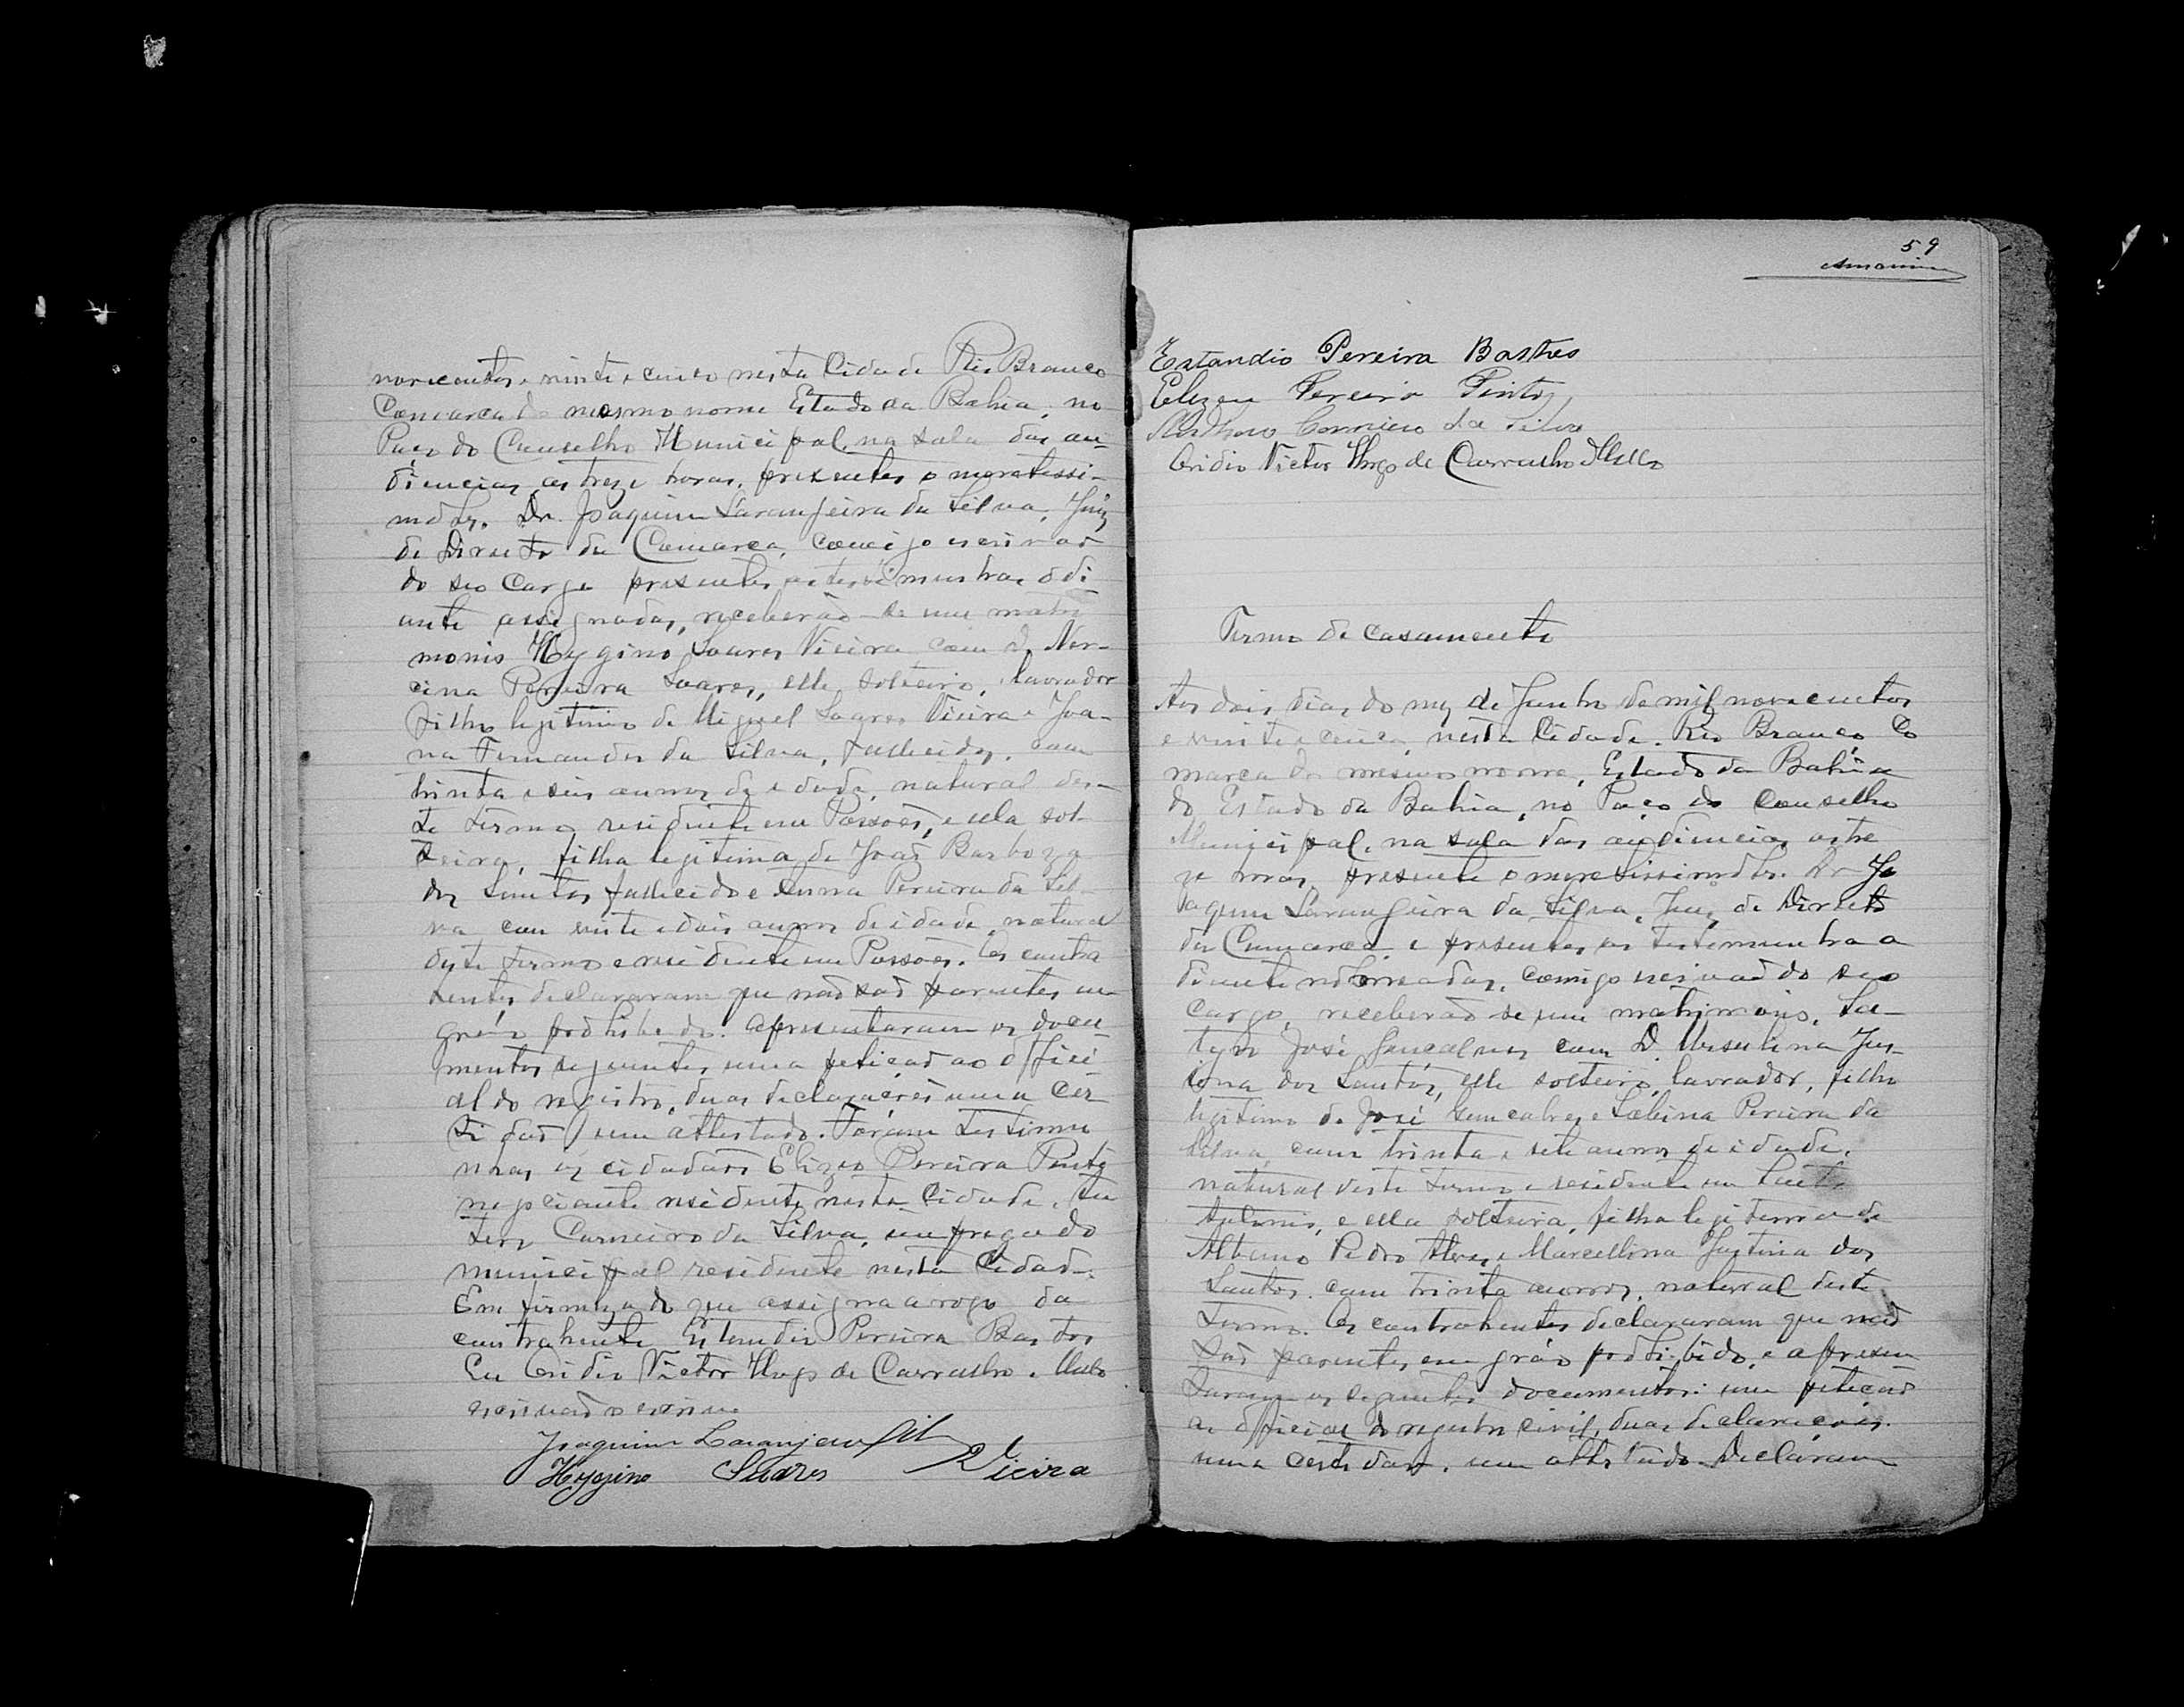 novecentos e vinte e cinco nesta Cidade Rio Branco
Comarca do mesmo nome Estado da Bahia, no
Paço do Conselho Municipal, na sala das au-
diencias as treze horas, presentes o meretissi-
mo Sr. Dr. Joaquim Laranjeira da Silva, Juiz
de Direito da Comarca, comigo escrivão
do seo Cargo presentes as testemunhas adi
ante assignadas, receberão-se em matri
monio Hygino Soares Vieira com D. Ner-
cina Pereira Soares, elle solteiro, lavrador
filho legitimo de Miguel Soares Vieira e Joa-
na Fernandes da Silva, fallecidos, com
trinta e seis annos de edade, natural des-
te termo residente em Possões, e ella sol-
teira, filha legitima de João Barboza
dos Santos fallecido e Anna Pereira da Sil-
va com vinte e dois annos de idade, natural
deste termo e residente em Possões. Os contra
hentes declararam que não são parentes em
gráo prohibido. Apresentaram os docu-
mentos seguintes uma petição ao offici-
al do registro, duas declarações uma Cer
tidão, um attestado. Foram testimu
nhas os cidadãos Elizeo Pereira Pinto
negociante residente nesta Cidade,
Carneiro da Silva, empregado
municipal residente nesta Cidade.
Em firmeza do que assigna a rogo da
contrahente Estandio Pereira Bastos
Eu Ovidio Victor Hugo de Carvalho e Mello
escrivão o escrevi
Joaquim Laranjeira Silva
Hygino Suares Vieira
59
Estandio Pereira Basthos
Elizeu Pereira Pinto
Carneiro da Silva
Ovidio Victor Hugo de Carvalho Mello
Termo de Casamento
Aos dois dias do mez de Junho de mil novecentos
e vinte e cinco, nesta Cidade. Rio Branco, Co
marca do mesmo nome, Estado da Bahia
do Estado da Bahia, no Paço do Conselho
Municipal, na sala das audiencias as tre
ze horas, presente o meretissimo Sr. Dr. Jo
aquim Laranjeira da Silva, Juiz de Direito
da Comarca e presentes as testemunhas a
diante nomeadas, comigo escrivão do seo
Cargo, receberão se em matrimonio,
José Goncalves com D. Ursulina Jus-
tina dos Santos, elle solteiro, lavrador, filho
legitimo de José Goncalves e Sabina Pereira da
Silva, com trinta e sete annos de idade,
natural deste termo e residente em Santo
Antonio, e ella solteira, filha legitima de
Albano Pedro Alves e Marcellina Justina dos
Santos, com trinta annos, natural deste
termo. Os contrahentes declararam que não
são parentes em gráo prohibido, e apresen
taram os seguintes documentos: uma petição
ao official do registro civil, duas declarações.
uma certidão, um attestado. Declaram